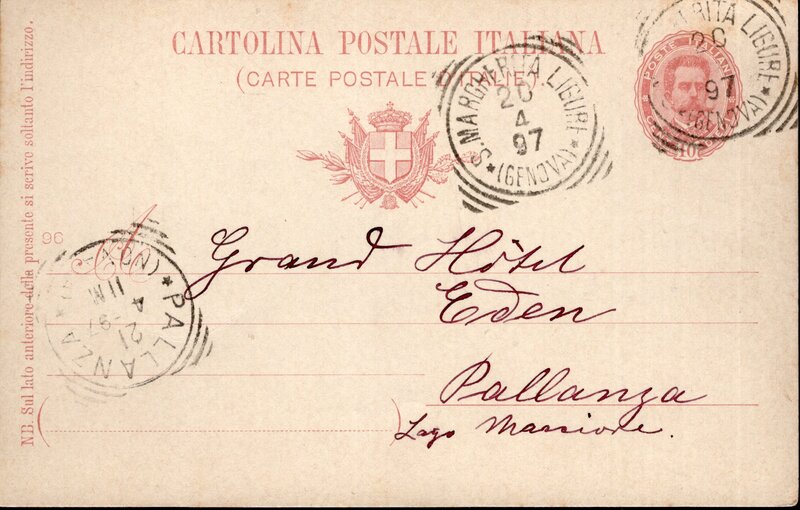 CARTOLINA POSTALE ITALIANA
(CARTE POSTALE D'ITALIE).
S. MARGHERITA LIGURE
20
4
97
(GENOVA)
RITA LIGURE
20
97
(GENOVA)
POSTE ITALIANE
10
NB. Sul lato anteriore della presente si scrive soltanto l'indirizzo.
96
A
Grand Hôtel
Eden
Pallanza
Lago Maggiore.
PALLANZA
21
4-97
11M